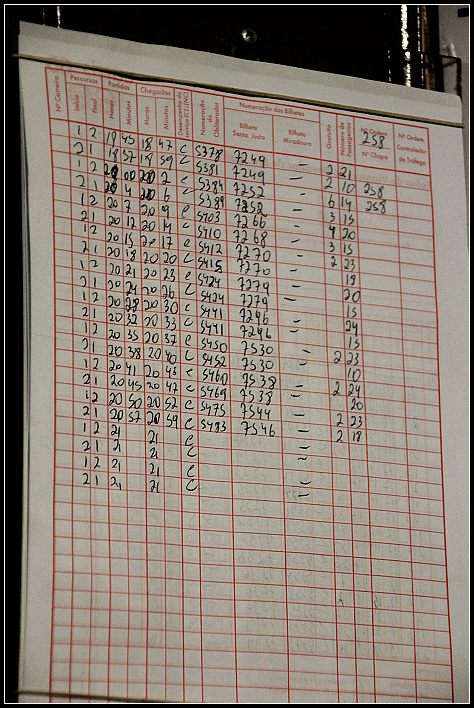 Nº Carreira Percursos Partidas Chegadas Desempenho do serviço (C) (NC) Numeração do Obliterador Numeração dos Bilhetes Gratuito Número de Passageiros Nº Ordem Nº Ordem
Início Final Horas Minutos Horas Minutos Bilhete Santa Justa Bilhete Miradouro Nº Chapa Controlador de Tráfego
258
1 2 19 45 18 47 C 5378 7249 –
2 1 18 57 18 59 C 5381 7249 2 21
1 2 20 00 20 2 C 5384 7252 – 2 10 258
2 1 20 4 20 6 C 5389 7252 – 6 14 258
1 2 20 7 20 9 C 5403 7266 – 3 15
2 1 20 12 20 14 C 5410 7268 – 4 20
1 2 20 15 20 17 C 5412 7270 – 3 15
2 1 20 18 20 20 C 5415 7270 – 2 23
1 2 20 21 20 23 C 5424 7279 – 18
2 1 20 24 20 26 C 5424 7279 – 20
1 2 20 28 20 30 C 5441 7296 15
2 1 20 32 20 33 C 5441 7296 24
1 2 20 35 20 37 C 5450 7530 – 15
2 1 20 38 20 40 C 5452 7530 – 2 23
1 2 20 41 20 43 C 5460 7538 – 10
2 1 20 45 20 47 C 5469 7538 – 2 24
1 2 20 50 20 52 C 5475 7544 – 20
2 1 20 57 20 59 C 5483 7546 – 2 23
1 2 21 21 C – 2 18
2 1 21 21 C –
1 2 21 21 C –
2 1 21 21 C –